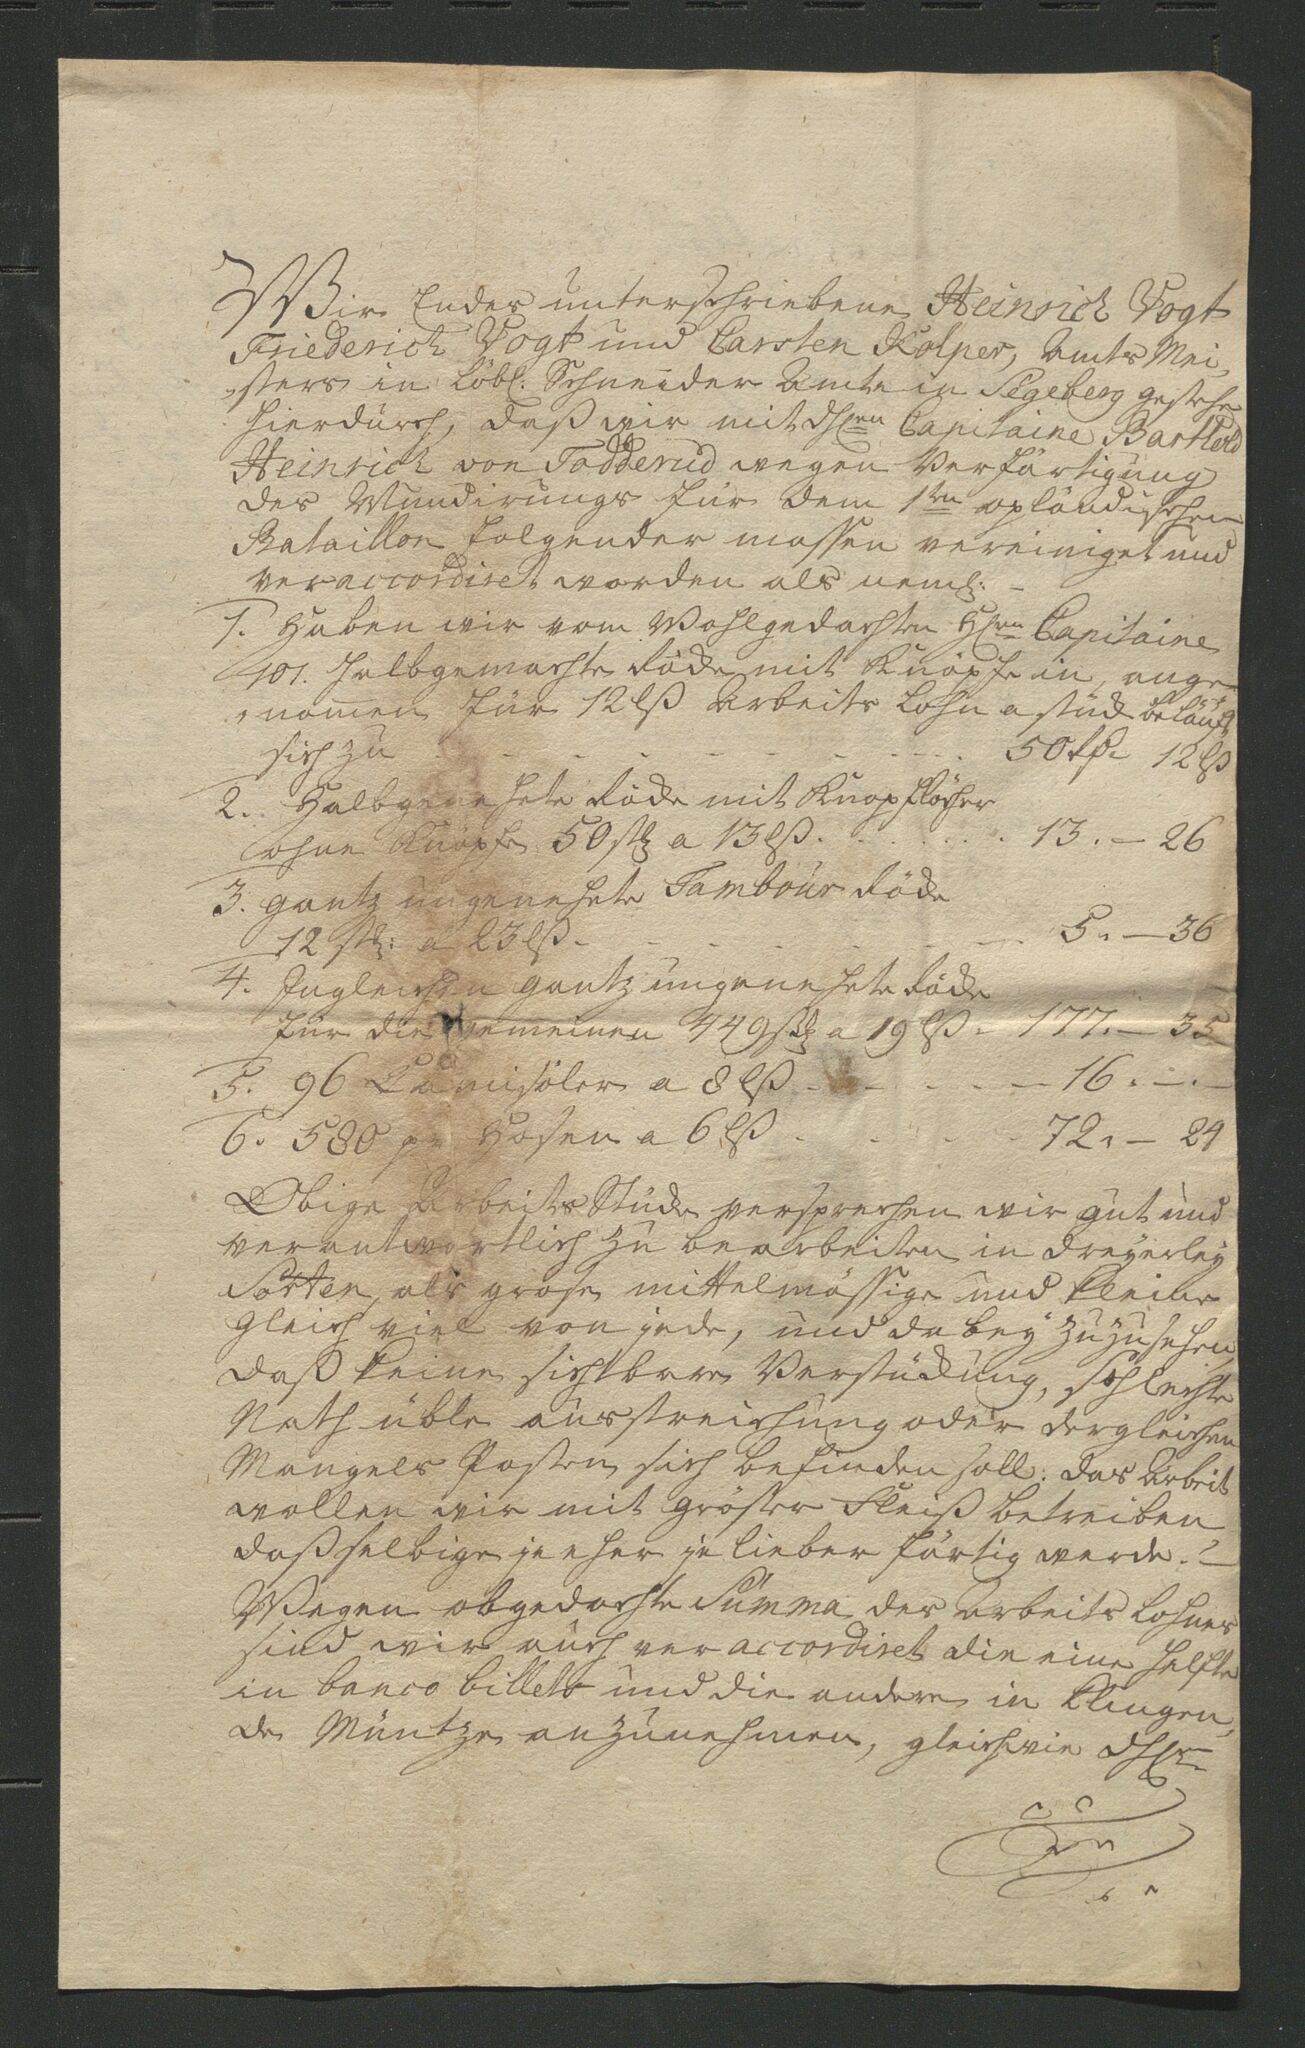 Wir Endes unterschriebene Heinrich Vogt
Friederich Vogt und Carsten Kolper, Amts Mei,
sters in Löbl. Schneider Amte in Segeberg gestehe
hierdürch, daß wir mit dHren Capitaine Barthold
Heinrich von Fodderud wegen Verfärtigung
des Mundirungs für dem 1ten opländischen
Bataillon folgender massen vereiniget und
veraccordiret worden als neml: -
1. Haben wir vom Wohlgedachten Hren Capitaine
101. halbgemachte Röcke mit Knöpfe in, ange,
nomen für 12 lß Arbeits Lohn a stück beläuft
sich zu - - - - 50 rß 12 lß
2. Halbgenehete Röcke mit Knopflöcher
ohne Knöpfe 50 stk a 13 lß. - - - 13. - 26
3. gantz ungenehete Tambour Röcke
12 stk: a 23 lß - - - - 5. - 36
4. Jngleichen gantz ungenehete Röcke
für die gemeinen 449 stk a 19 lß - 177. - 35
5. 96 Camisöler a 8 lß - - - - 16. - . -
6. 580 pr Hosen a 6 lß - - - - 72. - 24
Obige Arbeits Stücke versprechen wir gut und
verantwortlich zu bearbeiten in dreyerley
Sorten, als grose mittelmässige und kleine
gleich viel von jede, und dabey zuzusehen,
daß keine sichtbare Verstückung, schlechte
Nath üble ausstreichung oder dergleichen
Mangels Posten sich befinden soll. das Arbeit
wollen wir mit grösser Fleiß betreiben
daß selbige je eher je lieber färtig werde. -
Wegen obgedachte Summa des Arbeits Lohnes
sind wir auch veraccordiret die eine Helfte
in banco billets und die andere in klingen,
de Müntze anzunehmen, gleichwie dHr